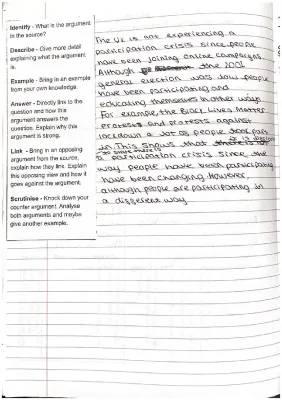 Identify - What is the argument
in the source?
Describe - Give more detail
explaining what the argument
is.
Example - Bring in an example
from your own knowledge.
Answer - Directly link to the
question and how this
argument answers the
question. Explain why this
argument is strong.
Link - Bring in an opposing
argument from the source,
explain how they link. Explain
this opposing view and how it
goes against the argument.
Scrutinise - Knock down your
counter argument. Analyse
both arguments and maybe
give another example.
The UK is not experiencing a
participation crisis since people
have been joining online campaigns.
Although the 2001
general election was low people
have been participating and
educating themselves in other ways
For example, the Black Lives Matter
protests and protests against
lockdown a lot of people took part
in. This shows that there is
to state there is
a participation crisis since the
way people have been participating
have been changing. However,
although people are participating in
a different way